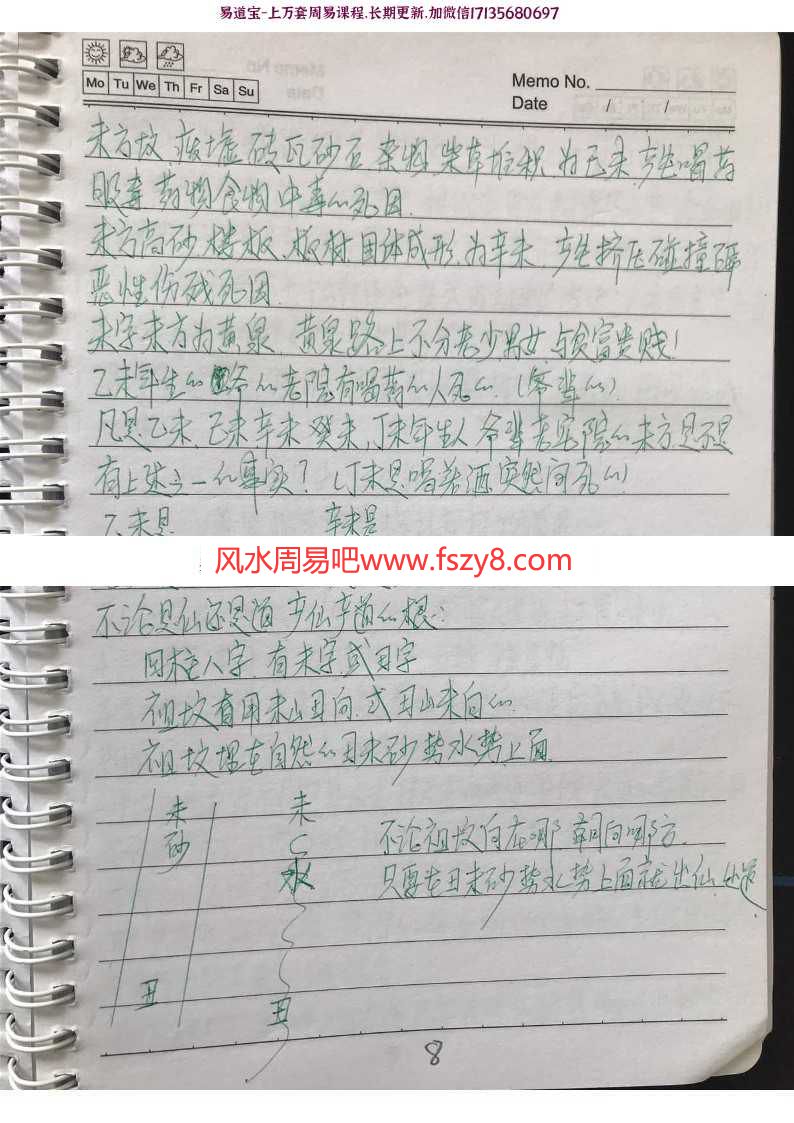 易道宝-上万套周易课程.长期更新.加微信17135680697
Memo No.
Mo Tu We Th Fr Sa Su
Date / /
未方放 废墟 砖瓦砂石 杂物 柴草堆积 为己未 产生喝药
服毒 药物食物中毒的死因
未方高砂 楼板 板材 团体成形 为辛未 产生挤压碰撞砸
恶性伤残死因
未字未方为黄泉 黄泉路上不分老少男女与贫富贵贱!
乙未年生的 爷的老院有喝药的人死的 (爷辈的)
凡是乙未 己未 辛未 癸未 丁未年生人 爷辈老宅院的未方是不是
有上述之一的事实? (丁未是喝药酒突然间死的)
乙未是 辛未是
风水周易吧www.fszy8.com
不论是仙还是道 产仙产道的根:
四柱八字 有未字或丑字
祖坟有用未山丑向 或丑山未向的
祖坟埋在自然的丑未砂势水势上面
未 未
砂 水
不论祖坟向在哪 朝向哪方
只要在丑未砂势水势上面就出仙处道
丑 丑
8